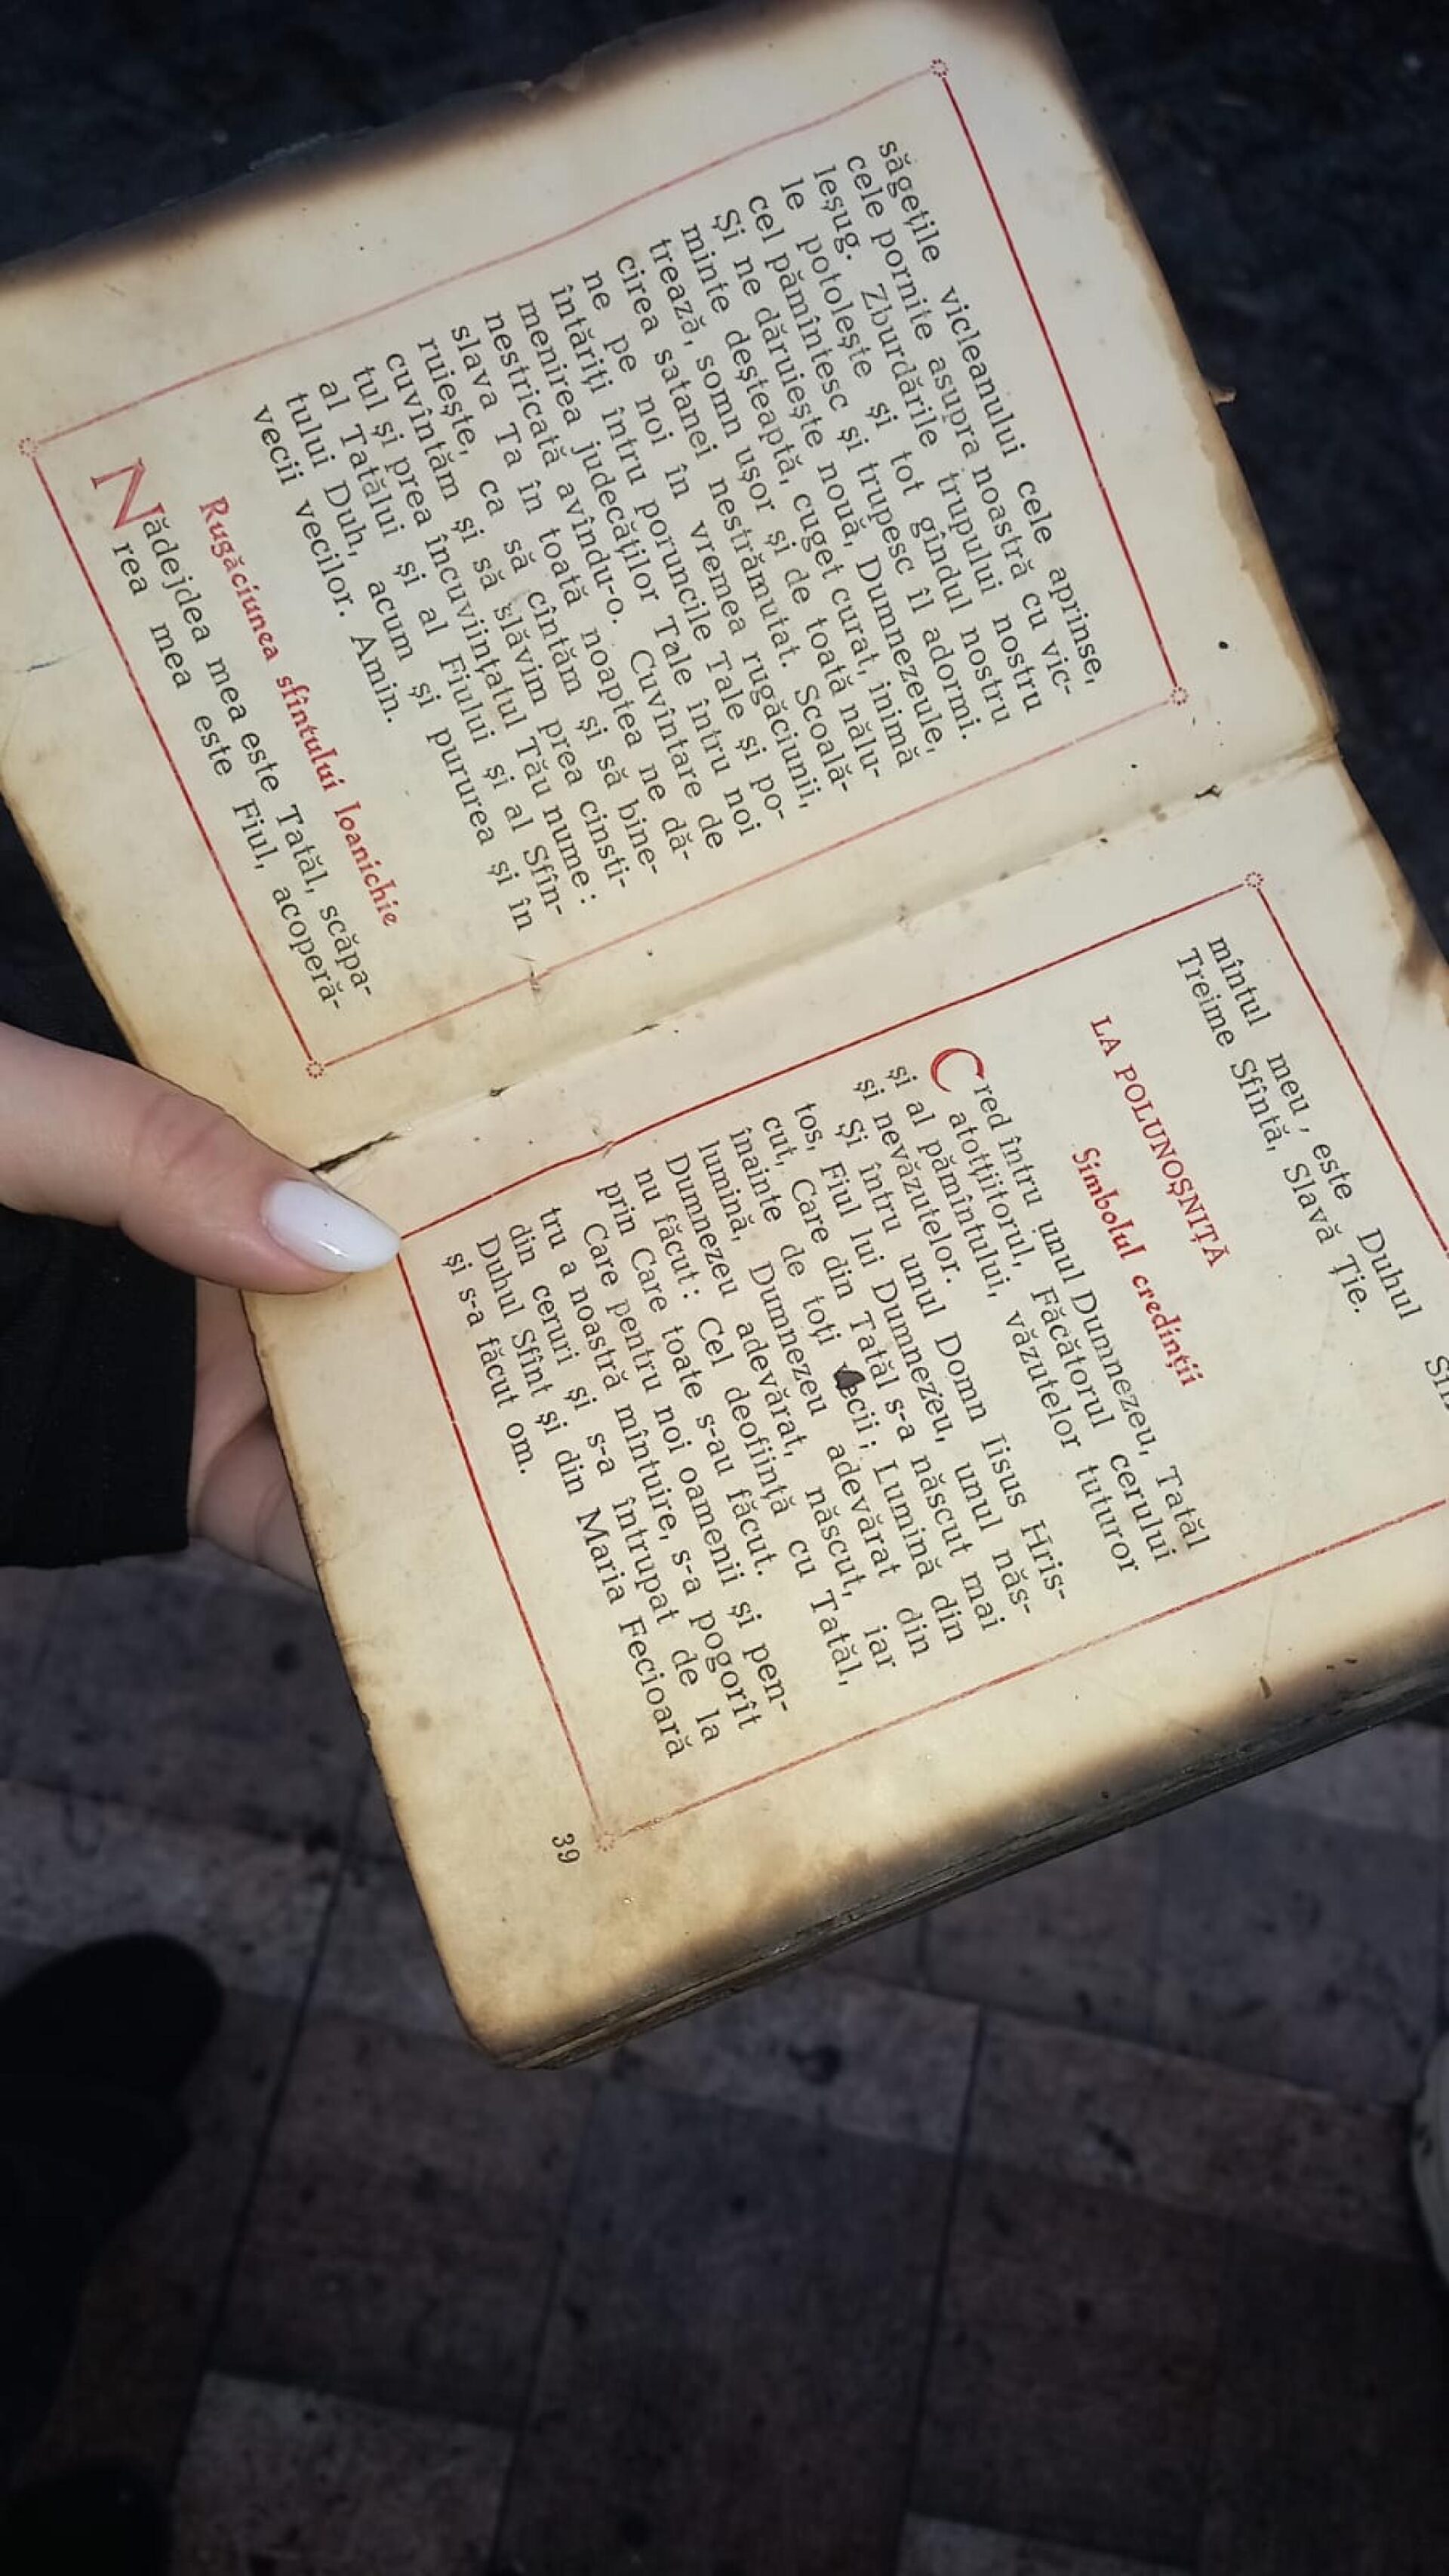 săgețile vicleanului cele aprinse,
cele pornite asupra noastră cu vic-
leșug. Zburdările trupului nostru
le potolește și tot gîndul nostru
cel pămîntesc și trupesc îl adormi.
Și ne dăruiește nouă, Dumnezeule,
minte deșteaptă, cuget curat, inimă
trează, somn ușor și de toată nălu-
cirea satanei nestrămutat. Scoală-
ne pe noi în vremea rugăciunii,
întăriți întru poruncile Tale și po-
menirea judecăților Tale întru noi
nestricată avîndu-o. Cuvîntare de
slava Ta în toată noaptea ne dă-
ruiește, ca să cîntăm și să bine-
cuvîntăm și să slăvim prea cinsti-
tul și prea încuviințatul Tău nume :
al Tatălui și al Fiului și al Sfîn-
tului Duh, acum și pururea și în
vecii vecilor. Amin.
Rugăciunea sfîntului Ioanichie
Nădejdea mea este Tatăl, scăpa-
rea mea este Fiul, acoperă-
mîntul meu, este Duhul
Treime Sfîntă, Slavă Ție.
LA POLUNOȘNIȚĂ
Simbolul credinții
Cred întru unul Dumnezeu, Tatăl
atotțiitorul, Făcătorul cerului
și al pămîntului, văzutelor tuturor
și nevăzutelor.
Și întru unul Domn Iisus Hris-
tos, Fiul lui Dumnezeu, unul năs-
cut, Care din Tatăl s-a născut mai
înainte de toți vecii ; Lumină din
lumină, Dumnezeu adevărat din
Dumnezeu adevărat, născut, iar
nu făcut : Cel deoființă cu Tatăl,
prin Care toate s-au făcut.
Care pentru noi oamenii și pen-
tru a noastră mîntuire, s-a pogorît
din ceruri și s-a întrupat de la
Duhul Sfînt și din Maria Fecioară
și s-a făcut om.
39